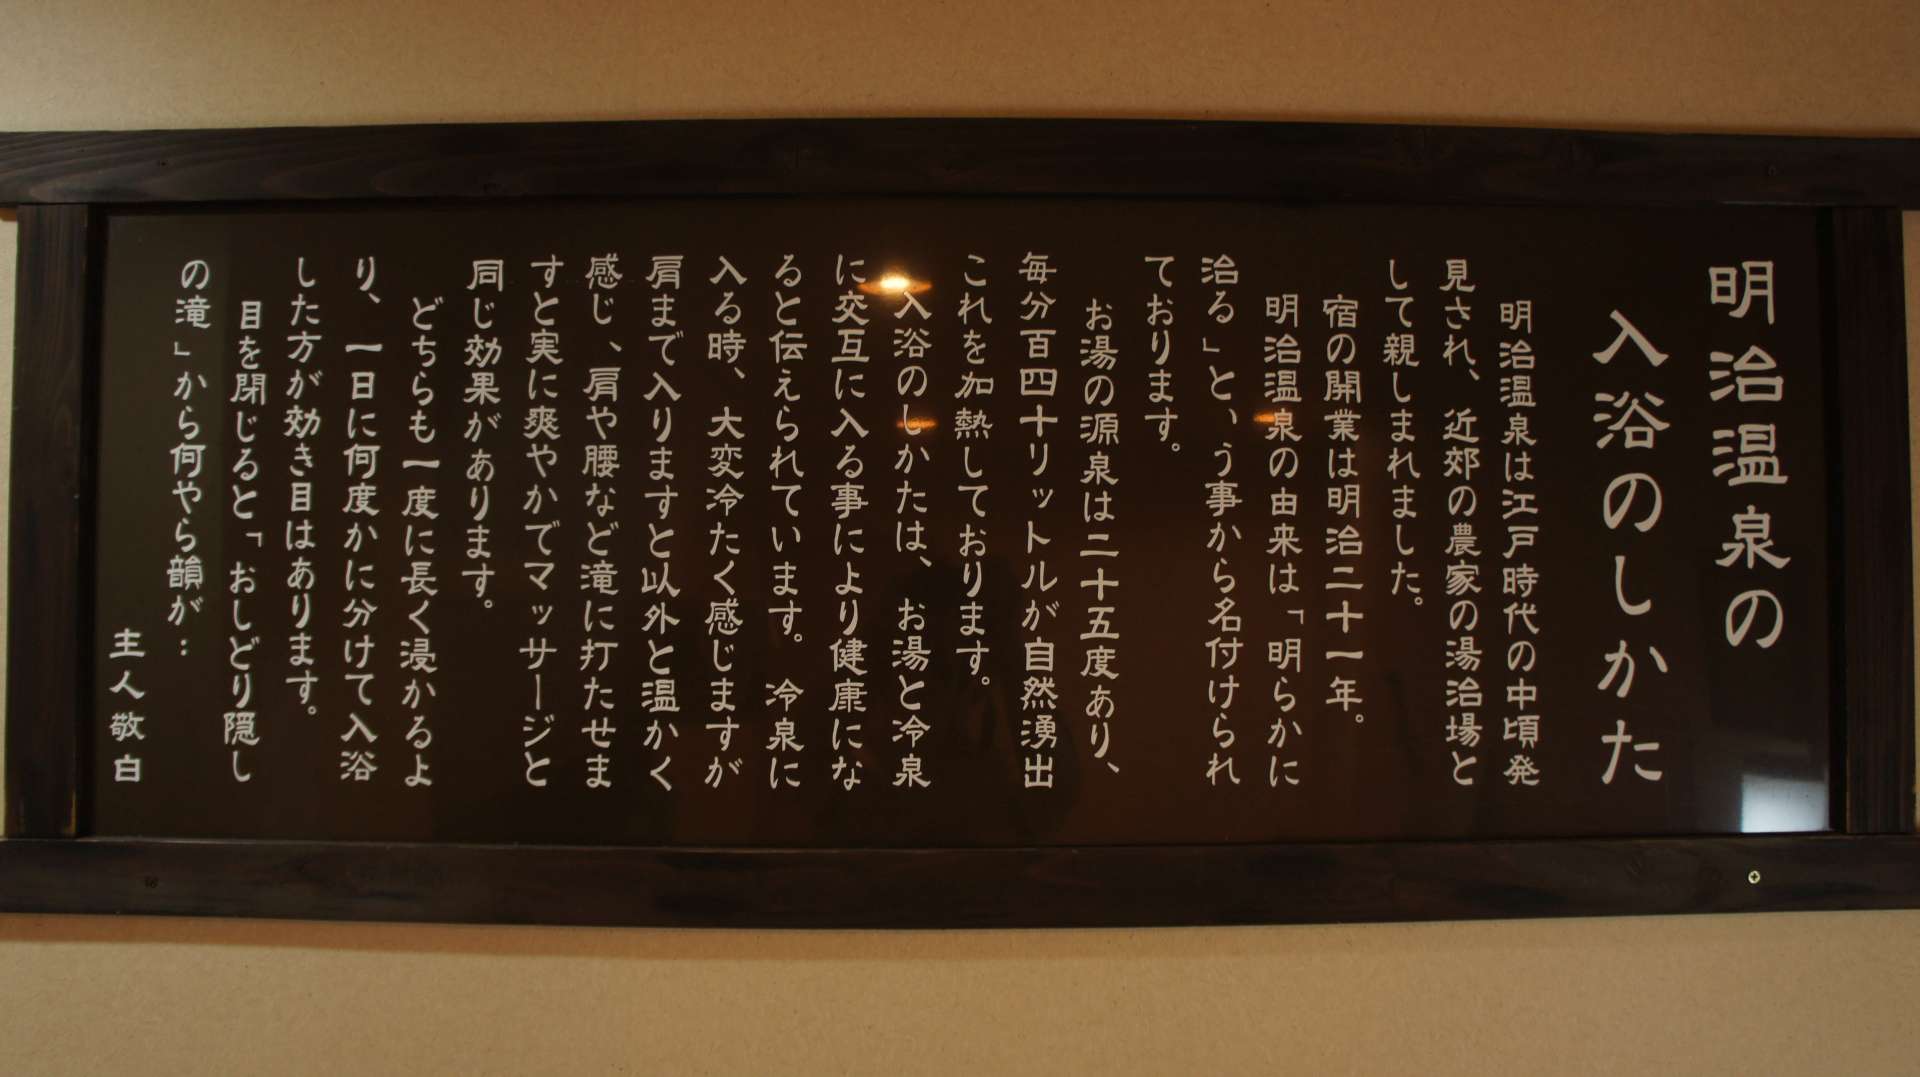 明治温泉の
入浴のしかた
明治温泉は江戸時代の中頃発
見され、近郊の農家の湯治場と
して親しまれました。
宿の開業は明治二十一年。
明治温泉の由来は「明らかに
治る」という事から名付けられ
ております。
お湯の源泉は二十五度あり、
毎分百四十リットルが自然湧出
これを加熱しております。
入浴のしかたは、お湯と冷泉
に交互に入る事により健康にな
ると伝えられています。冷泉に
入る時、大変冷たく感じますが
肩まで入りますと以外と温かく
感じ、肩や腰など滝に打たせま
すと実に爽やかでマッサージと
同じ効果があります。
どちらも一度に長く浸かるよ
り、一日に何度かに分けて入浴
した方が効き目はあります。
目を閉じると「おしどり隠し
の滝」から何やら韻が…
主人敬白